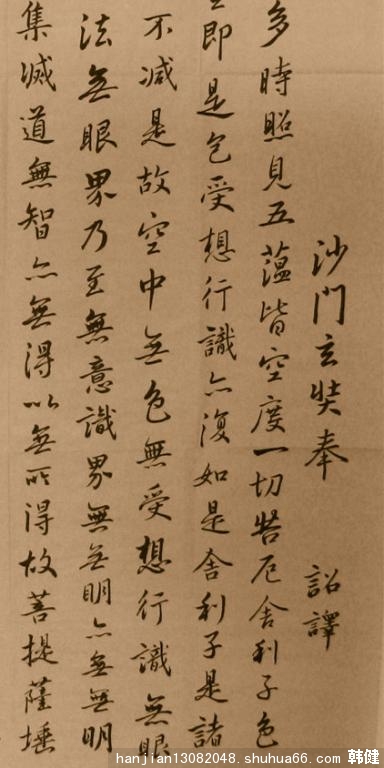 沙門玄奘奉 詔譯
多時照見五蘊皆空度一切苦厄舍利子色
即是色受想行識亦復如是舍利子是諸
不減是故空中無色無受想行識無眼
法無眼界乃至無意識界無無明亦無無明
集滅道無智亦無得以無所得故菩提薩埵
hanjian13082048.shuhua66.com 韩健